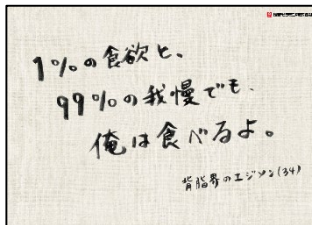 1%の食欲と、
99%の我慢でも、
俺は食べるよ。
背脂界のエジソン(34)